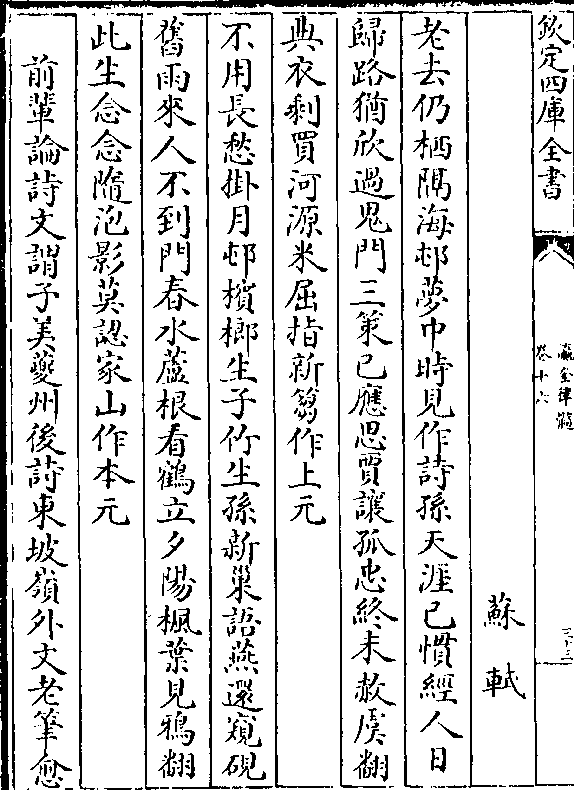 欽定四庫全書
瀛奎律髓
卷十六
三十三
蘇軾
老去仍栖隔海邨夢中時見作詩孫天涯已慣經人日
歸路猶欣過鬼門三策已應思賈讓孤忠終未赦虞翻
典衣剩買河源米屈指新篘作上元
不用長愁掛月邨檳榔生子竹生孫新巢語燕還窺硯
舊雨來人不到門春水蘆根看鶴立夕陽楓葉見鴉翻
此生念念隨泡影莫認家山作本元
前輩論詩文謂子美夔州後詩東坡嶺外文老筆愈